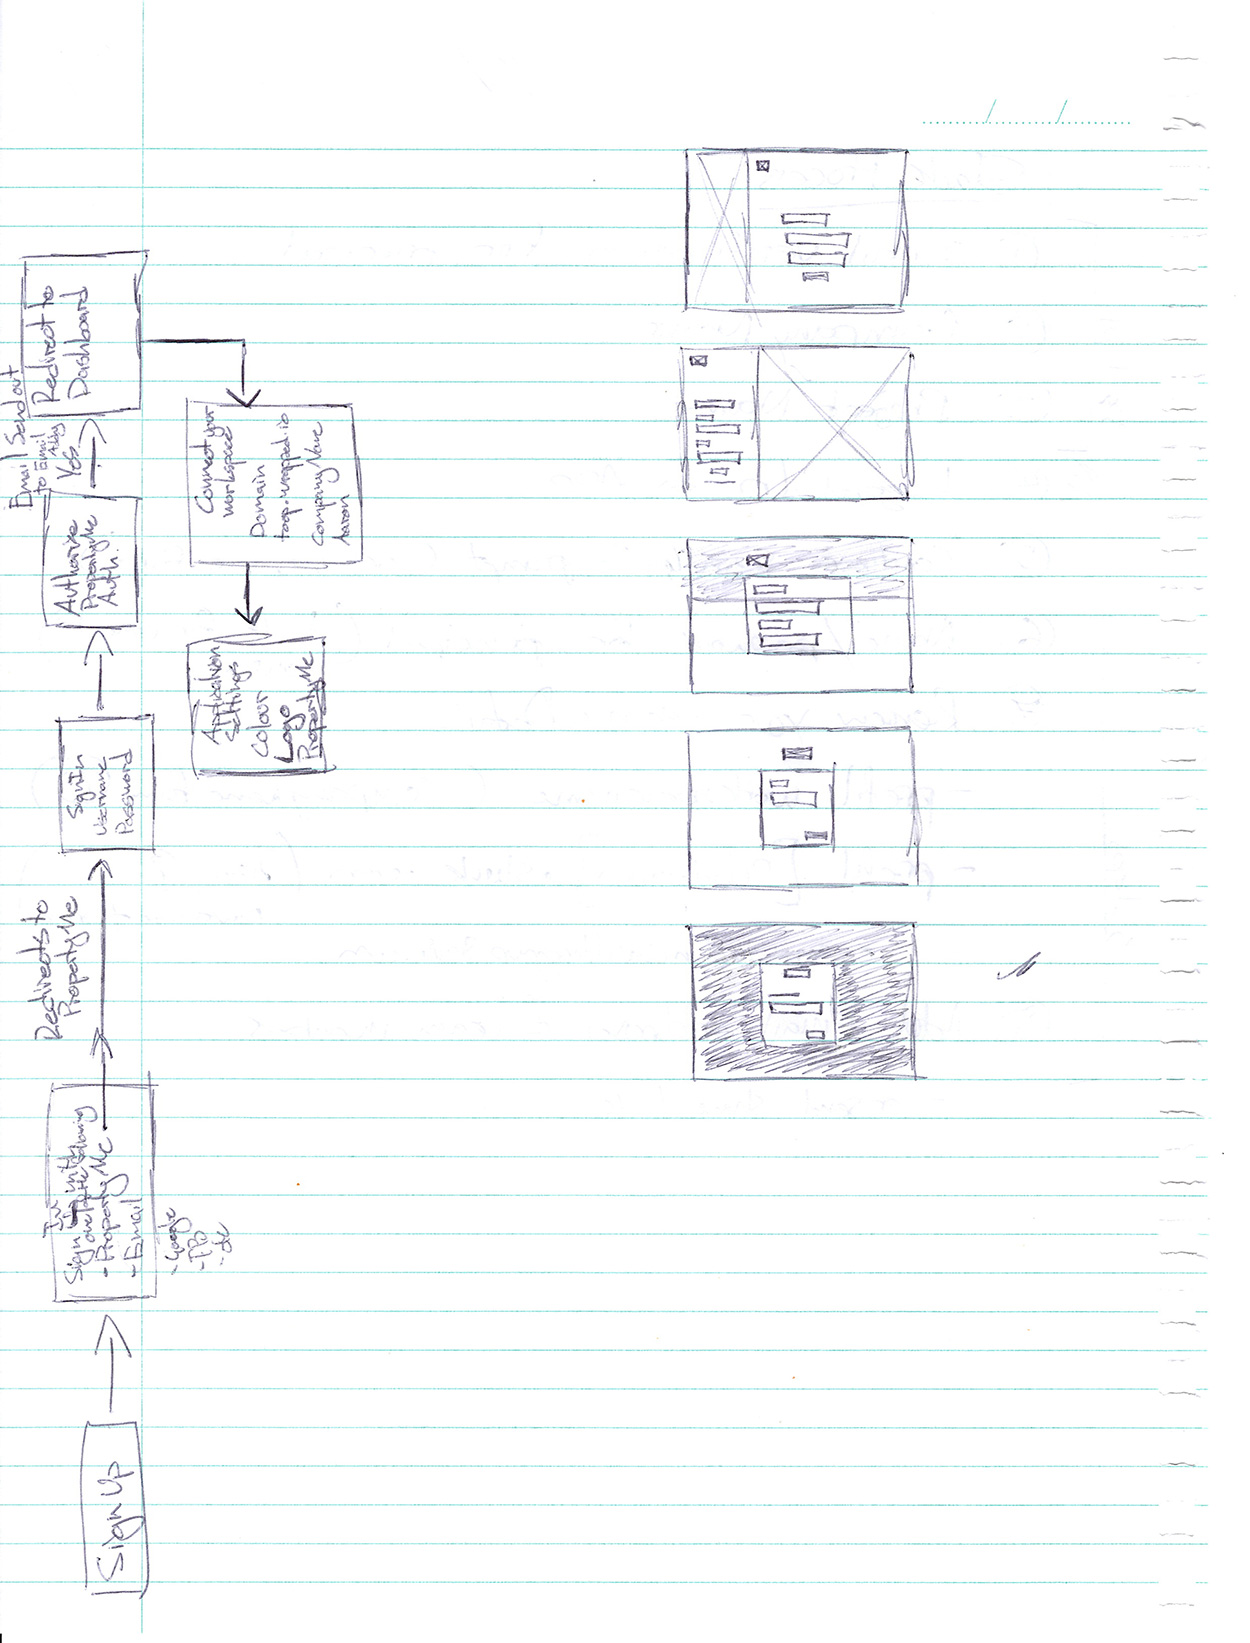 Sign Up
In
Sign with
one of the following
- PropertyMe
- Email
- Google
- etc
Redirects to
PropertyMe
Sign In
Username
Password
Authorise
PropertyMe
Auth.
Email Send out
to Email
Yes
Redirect to
Dashboard
Connect your
workspace
Domain
Company Name
Application
Settings
Colour
Logo
PropertyMe